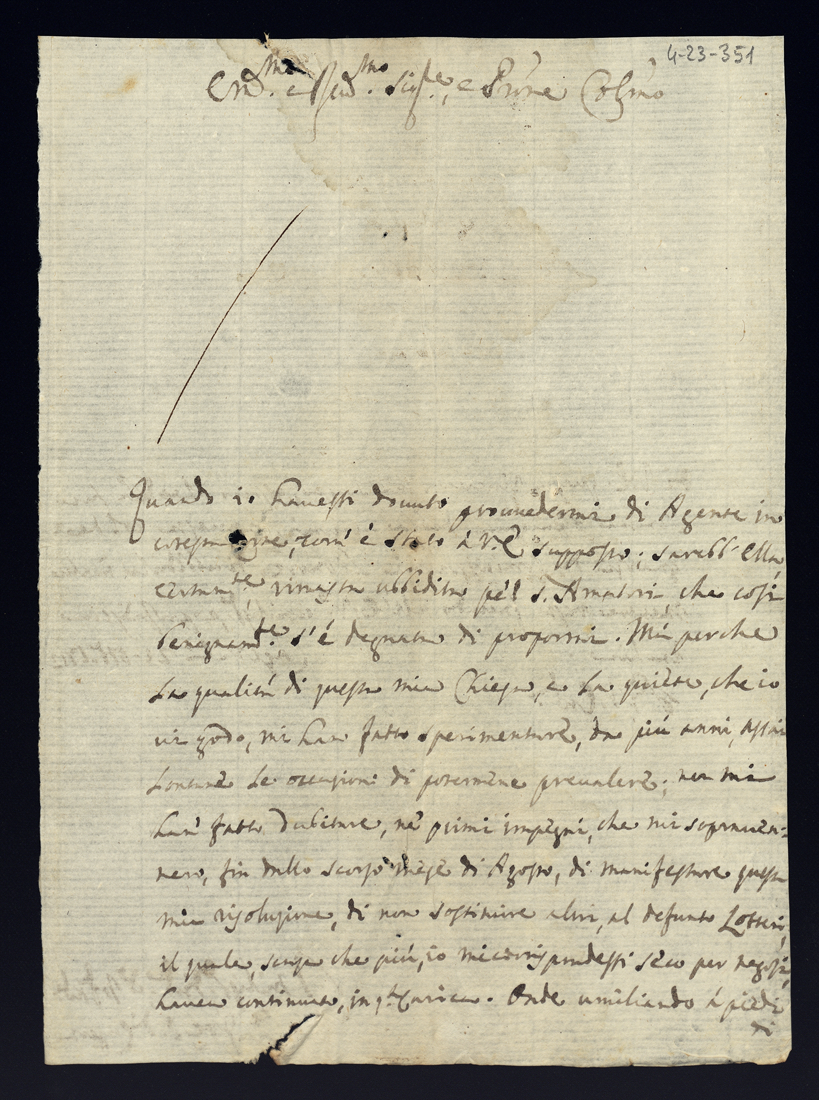 4-23-351
Em.mo e Rev.mo Sig.re, e Prōne Colmo
Quando io havessi dovuto provvedermi di Agente in
cotesta, com' è stato à V.E. supposto; sarebb' Ella,
certam.te rimasta ubbidita pel S. Amatori che così
benignam.te s'è degnata di propormi. Mà perche
la qualità di questa mia Chiesa, e la quiete, che io
vi godo, mi han fatto sperimentare, da più anni, assai
lontane le occasioni di potermene prevalere; non mi
han fatto dubitare, ne' primi impegni, che mi sopraven-
nero, fin dallo scorso mese di Agosto, di manifestare questa
mia risoluzione, di non sostituire altri, al defunto Lotteri,
il quale, senza che più, io mi corrispondessi seco per negozi,
havea continuato, in q.ta Carica. Onde umiliando à piedi
di